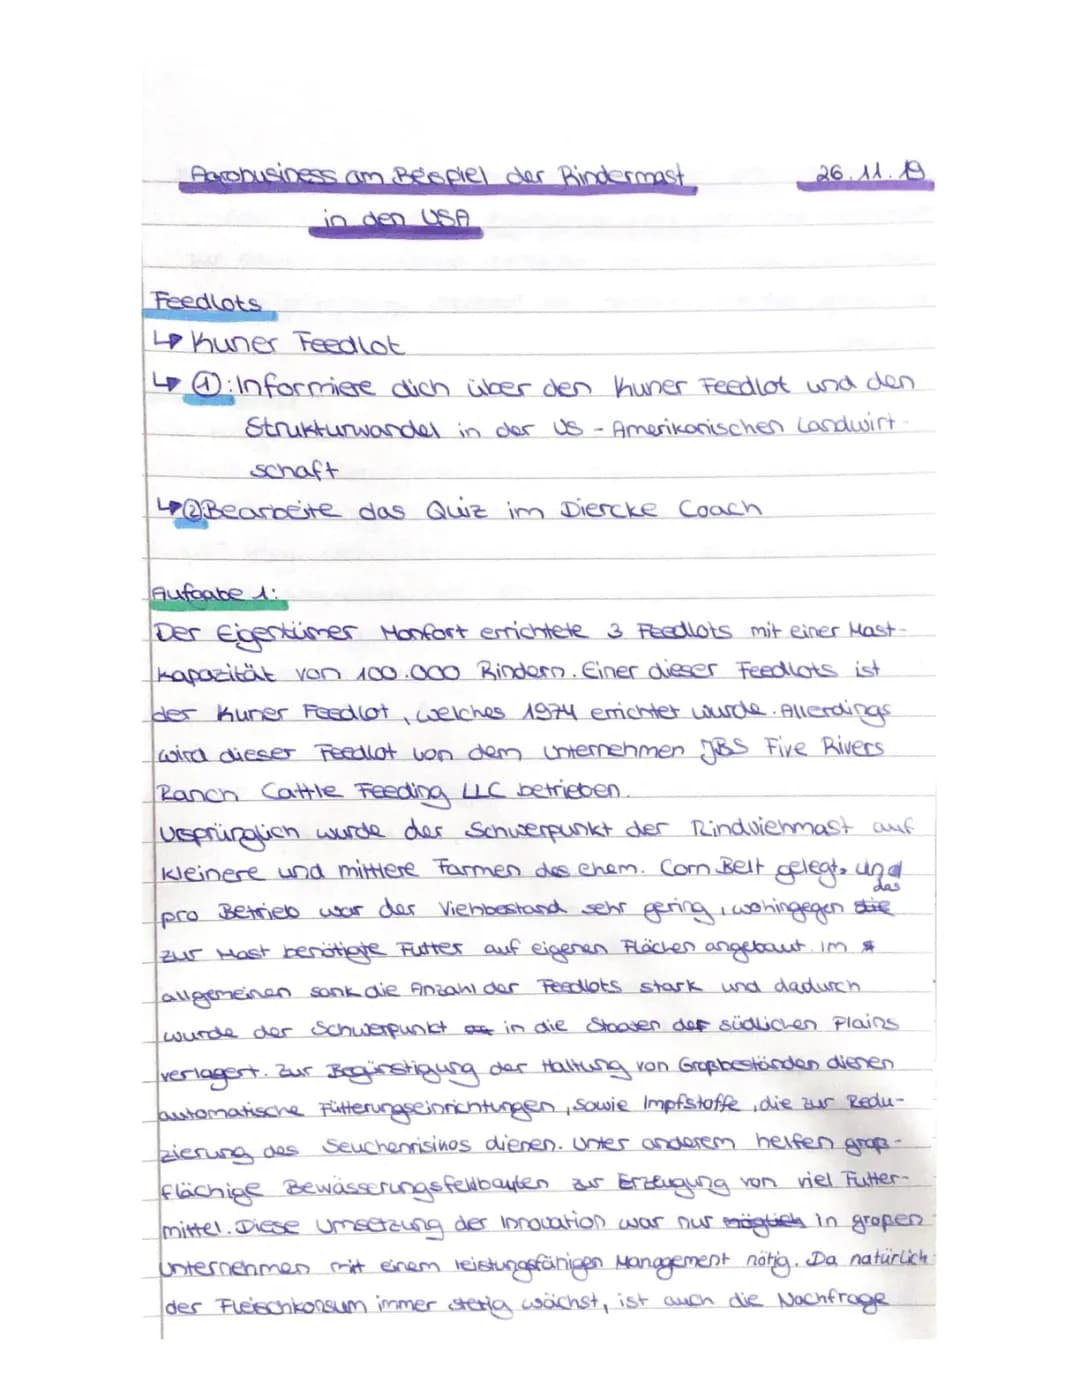 Agrobusiness am Beispiel der Rindermast 26.11.19
in den USA
Feedlots
↳ Kuner Feedlot
↳ ①: Informiere dich über den Kuner Feedlot und den
Strukturwandel in der US - Amerikanischen Landwirt-
schaft
↳ ② Bearbeite das Quiz im Diercke Coach
Aufgabe 1:
Der Eigentümer Monfort errichtete 3 Feedlots mit einer Mast-
kapazität von 100.000 Rindern. Einer dieser Feedlots ist
der Kuner Feedlot, welches 1974 errichtet wurde. Allerdings
wird dieser Feedlot von dem Unternehmen JBS Five Rivers
Ranch Cattle Feeding LLC betrieben.
Ursprünglich wurde der Schwerpunkt der Rindviehmast auf
kleinere und mittlere Farmen des ehem. Corn Belt gelegt, und
pro Betrieb war der Viehbestand sehr gering, wohingegen das
zur Mast benötigte Futter auf eigenen Flächen angebaut. Im
allgemeinen sank die Anzahl der Feedlots stark und dadurch
wurde der Schwerpunkt in die Staaten der südlichen Plains
verlagert. Zur Begünstigung der Haltung von Großbeständen dienen
automatische Fütterungseinrichtungen, sowie Impfstoffe, die zur Redu-
zierung des Seuchenrisikos dienen. Unter anderem helfen groß-
flächige Bewässerungsfeldbauten zur Erzeugung von viel Futter-
mittel. Diese Umsetzung der Innovation war nur in großen
Unternehmen mit einem leistungsfähigen Management nötig. Da natürlich
der Fleischkonsum immer stetig wächst, ist auch die Nachfrage